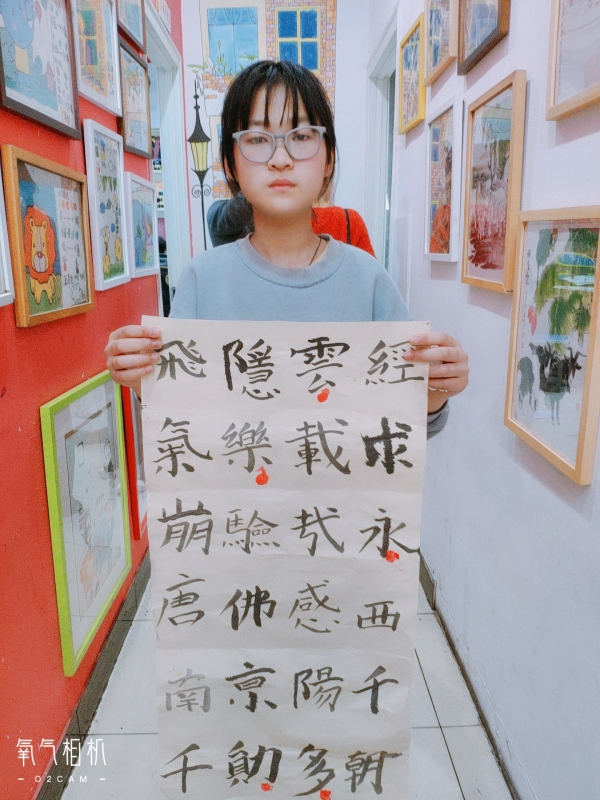 經求永西千朝
雲載感陽多
隱樂驗佛京勛
飛氣崩唐南千
氧气相机
- O2CAM -